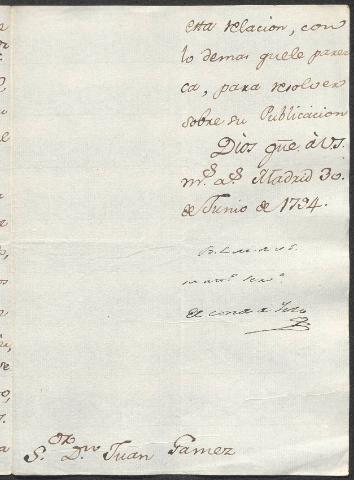 esta relacion, con
lo demas que le pares
ca, para resolver
sobre su Publicacion
Dios gue. à V.S.
ms. as. Madrid 30.
de Junio de 1794.
B. L. M. de V.S.
su
El conde de
S.or D.n Juan Gamez